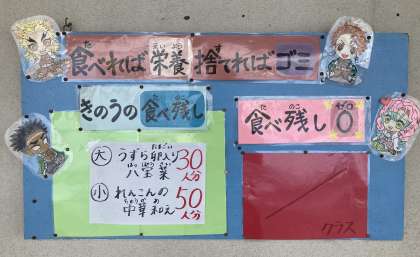 食べれば栄養 捨てればゴミ
きのうの食べ残し
大 うずら卵入り八宝菜 30人分
小 れんこんの中華和え 50人分
食べ残し0
クラス